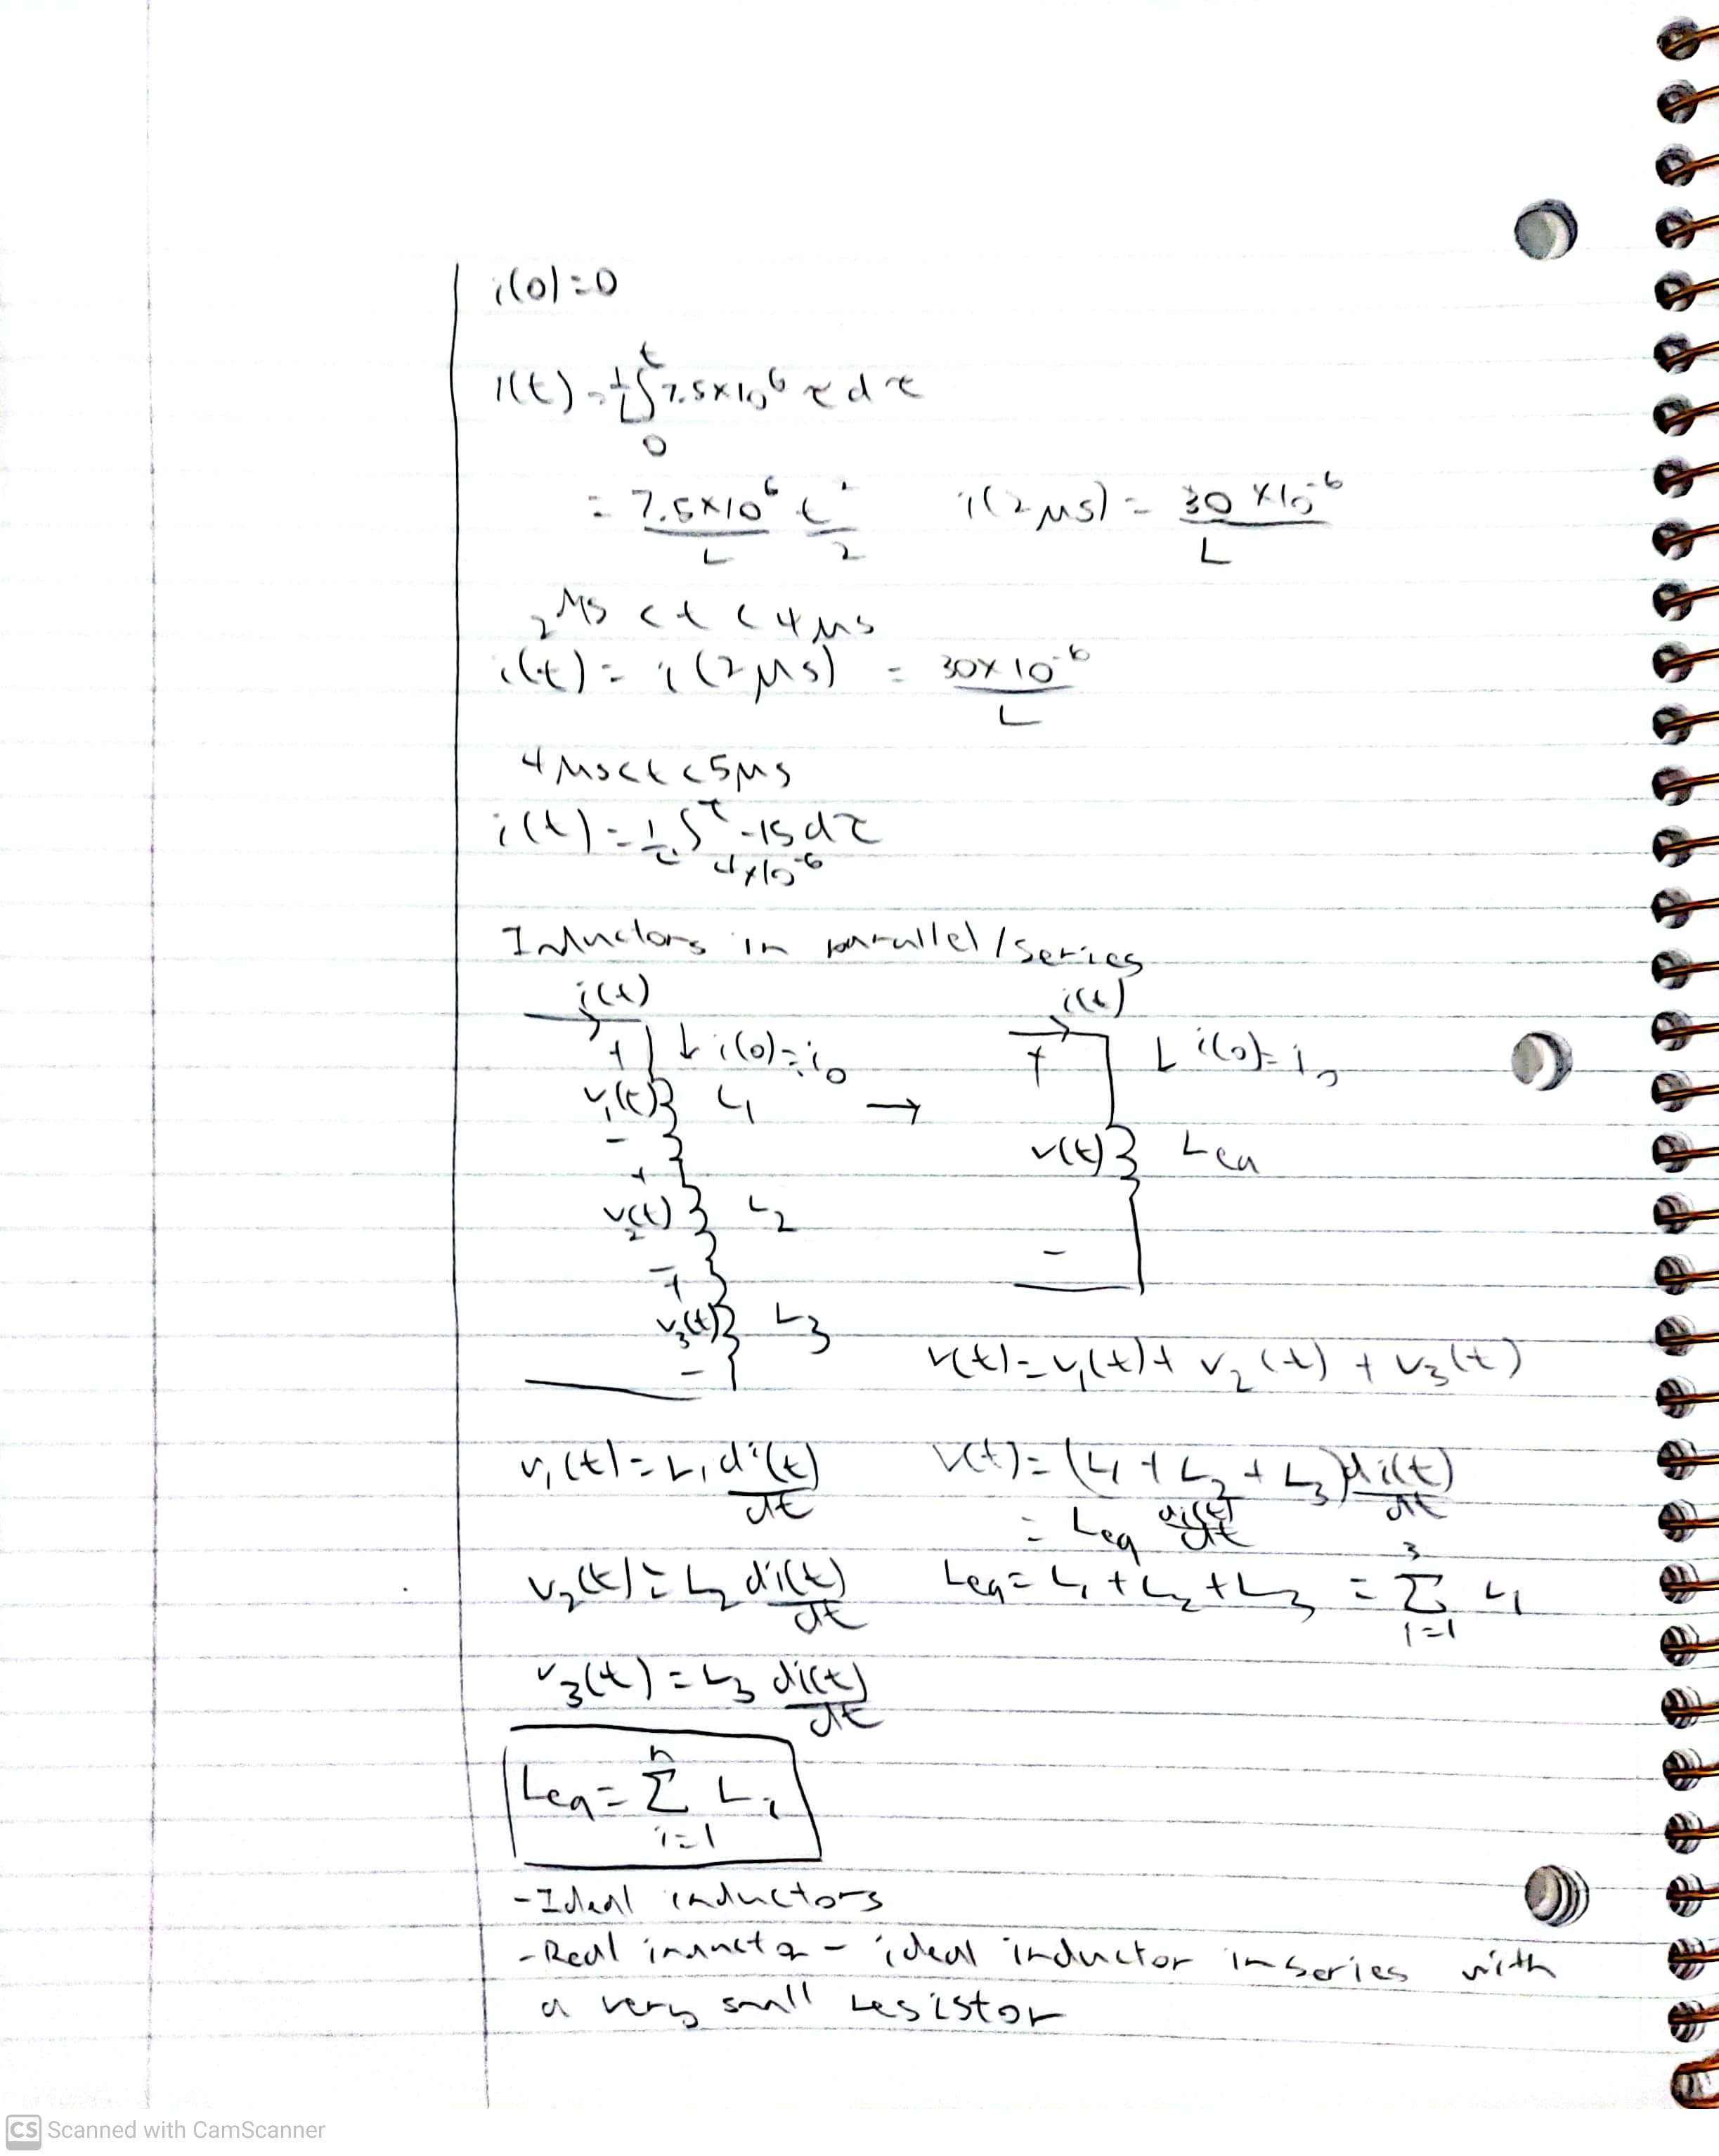 i(0)=0
i(t)=1/L ∫₀ᵗ 7.5×10⁶ τ dτ
= 7.5×10⁶/L t²/2    i(2μs) = 30×10⁻⁶/L
2μs < t < 4μs
i(t) = i(2μs) = 30×10⁻⁶/L
4μs<t<5μs
i(t) = 1/L ∫ᵗ -15dτ
4×10⁻⁶
Inductors in parallel/series
i(t)    i(t)
+ ↓ i(0)=i₀    + ↓ i(0)=i₀
v₁(t) L₁ →
-    v(t) Leq
+
v₂(t) L₂
-    -
+
v₃(t) L₃
-    v(t)=v₁(t)+v₂(t)+v₃(t)
v₁(t)=L₁ di(t)/dt    v(t)=(L₁+L₂+L₃)di(t)/dt
= Leq di(t)/dt
v₂(t)=L₂ di(t)/dt    Leq=L₁+L₂+L₃ = ³∑ᵢ₌₁ Lᵢ
v₃(t)=L₃ di(t)/dt
Leq= ⁿ∑ᵢ₌₁ Lᵢ
-Ideal inductors
-Real inductor - ideal inductor in series with
a very small resistor
CS Scanned with CamScanner